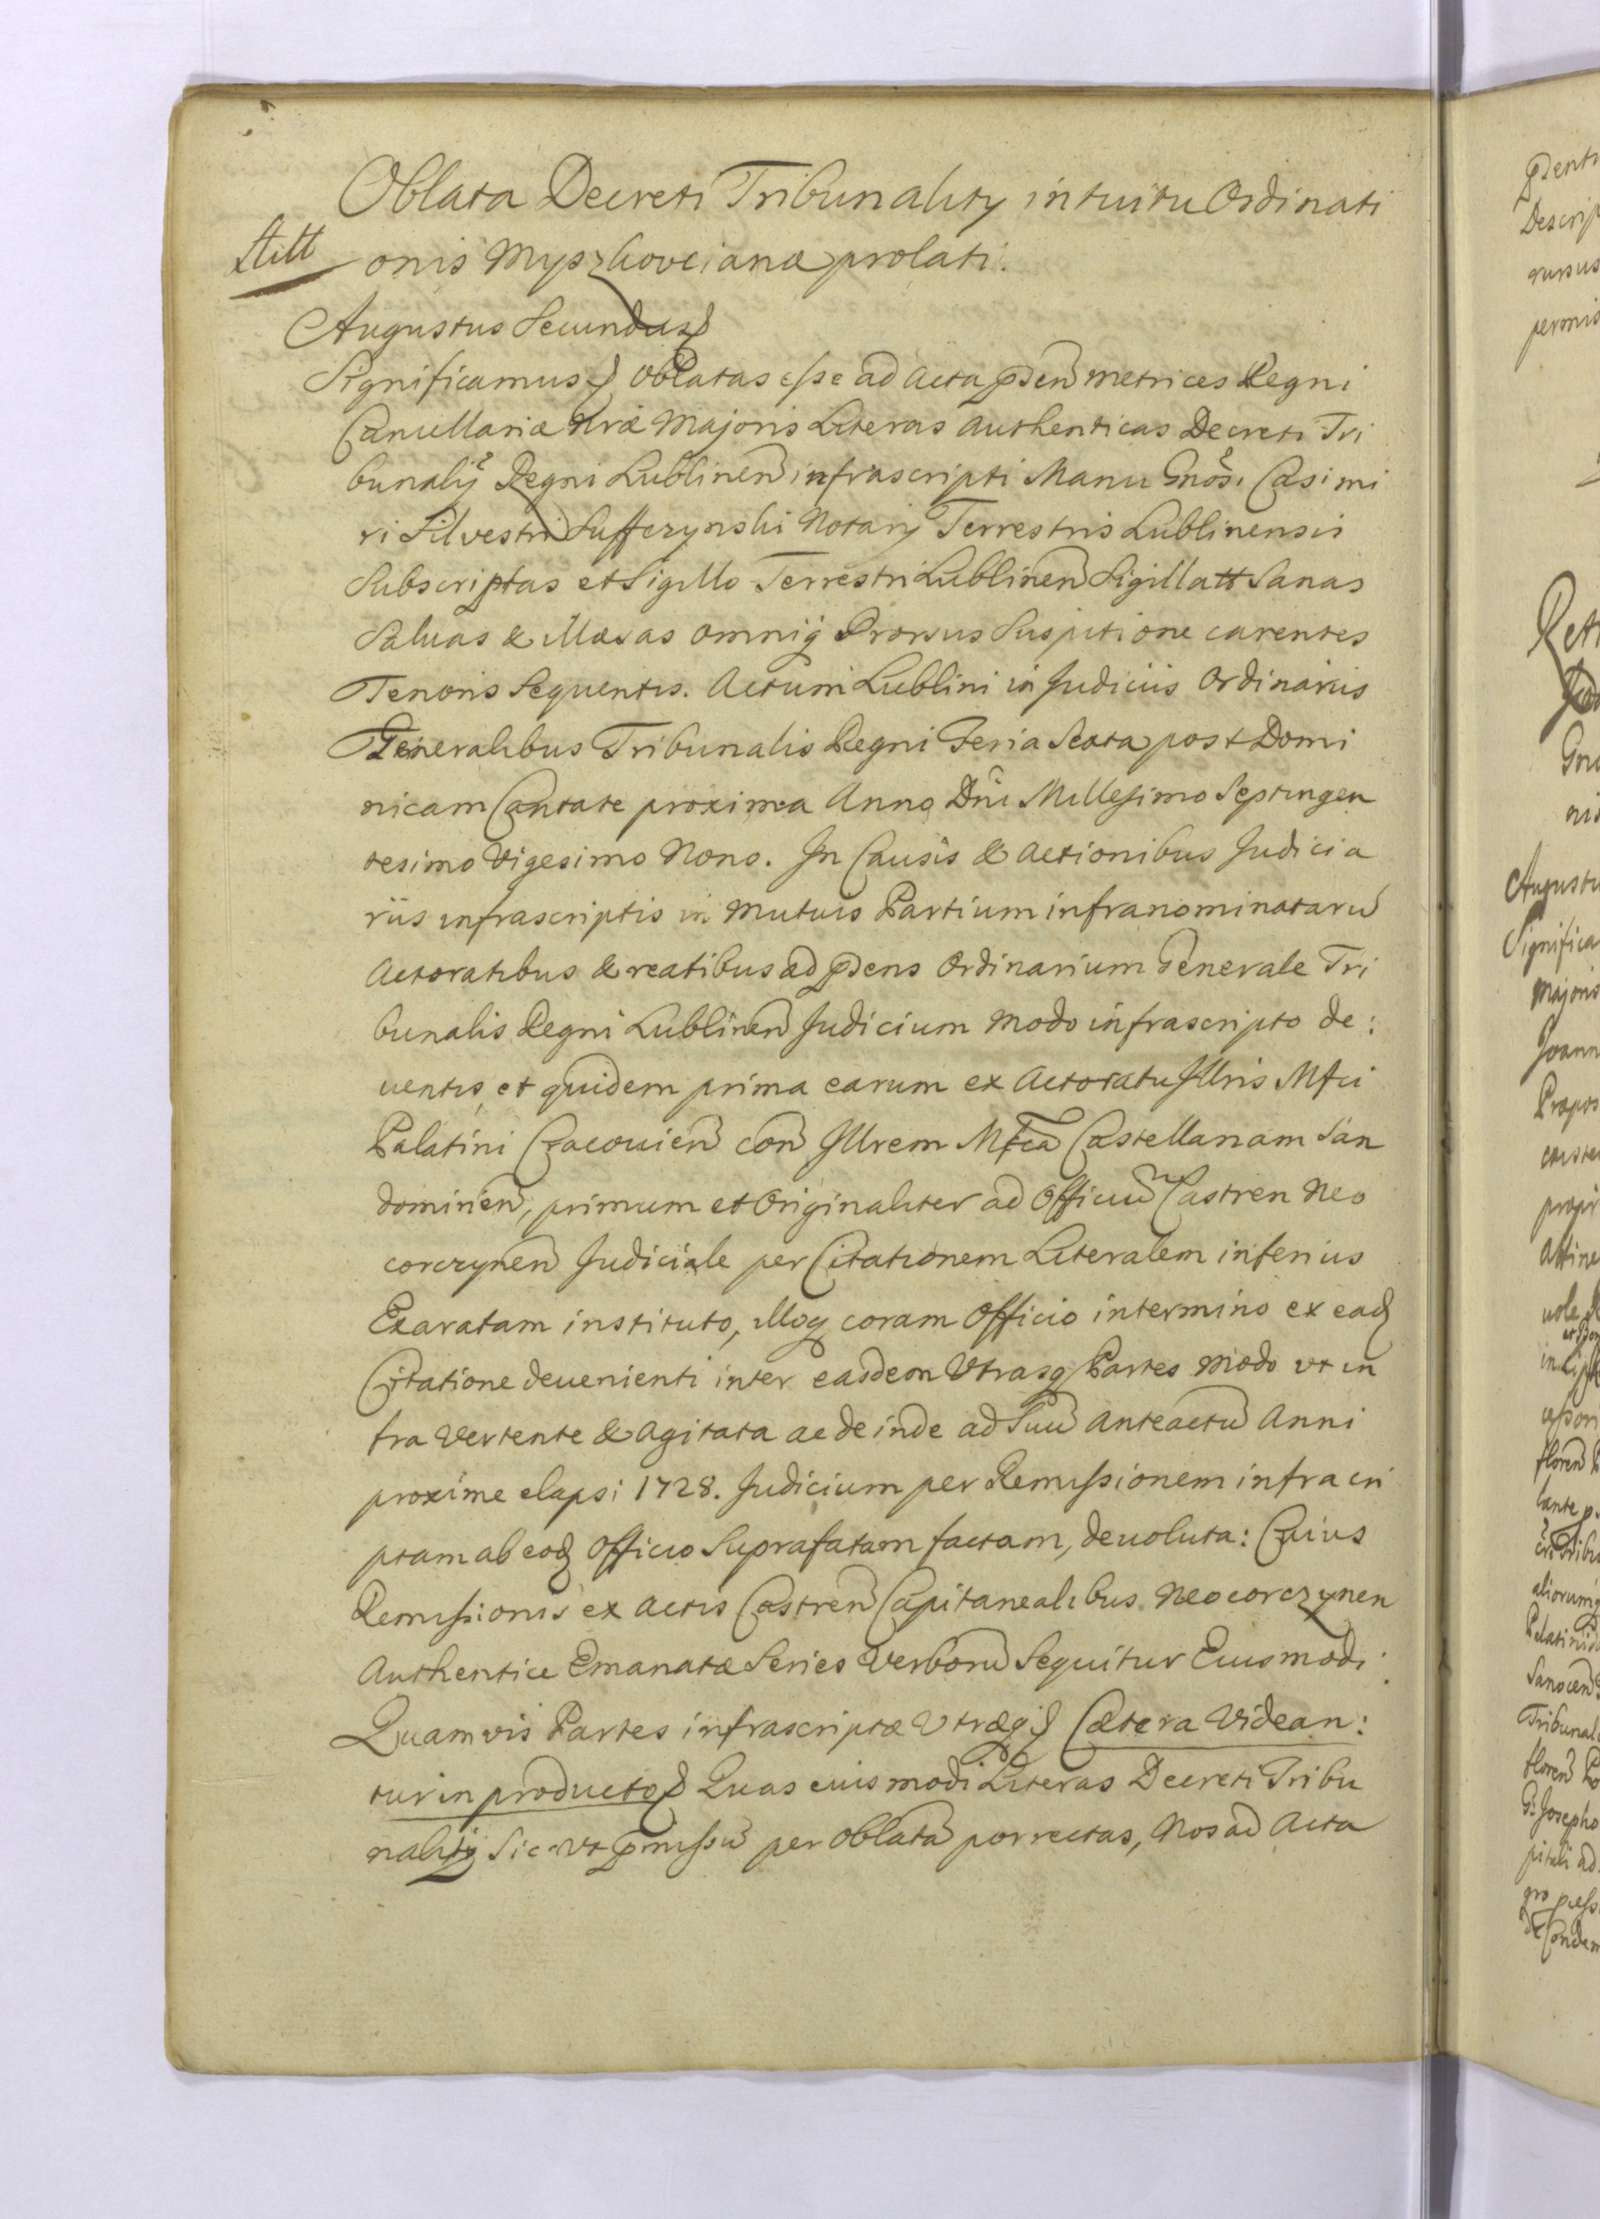 Oblata Decreti Tribunality intuitu Ordinati
onis Myszkoviana prolati.
Augustus Secundus
Significamus oblatas esse ad Acta Metrices Regni
Cancellariæ Nræ Majoris Literas Authenticas Decreti Tri
bunalis Regni Lublinen infrascripti Manu Gnosi Casimi
ri Silvestri Sufferzynski Notarÿ Terrestris Lublinensis
Subscriptas et Sigillo Terrestri Lublinen Sigillatt Sanas
Saluas & Illæsas omniq Prorsus Suspitione carentes
Tenoris Sequentis. Actum Lublini in Judiciis Ordinariis
Generalibus Tribunalis Regni Feria Sexta post Domi
nicam Cantate proxima Anno Dni Millesimo Septingen
tesimo Vigesimo Nono. In Causis & Actionibus Judicia
riis infrascriptis in Mutuis Partium infranominataru
Actoratibus & reatibus ad pdens Ordinarium Generale Tri
bunalis Regni Lublinen Judicium Modo infrascripto de:
uentis, et quidem prima earum ex Actoratu Illris Mfci
Palatini Cracouien con Illrem Mfca Castellanam San
domirien, primum et Originaliter ad Officiu Castren Neo
corczynen Judiciale per Citationem Literalem inferius
Exaratam instituto, Illoq coram Officio intermino ex ead
Citatione deuenienti inter easdem Utrasq Partes Modo ut in
fra Vertente & Agitata ac deinde ad Suu Anteactu Anni
proxime elapsi 1728. Judicium per Remissionem infra in
ptam ab eod Officio Suprafatam factam, deuoluta: Cuius
Remissionis ex Actis Castren Capitanealibus Neocorczynen
Authentice Emanatæ Series Verboru Sequitur Eiusmodi:
Quamvis Partes infrascriptæ Utræq Cætera Videan:
tur in producto Quas eiusmodi Literas Decreti Tribu
nality Sic Ut pmissu per oblata porrectas, Nos ad Acta